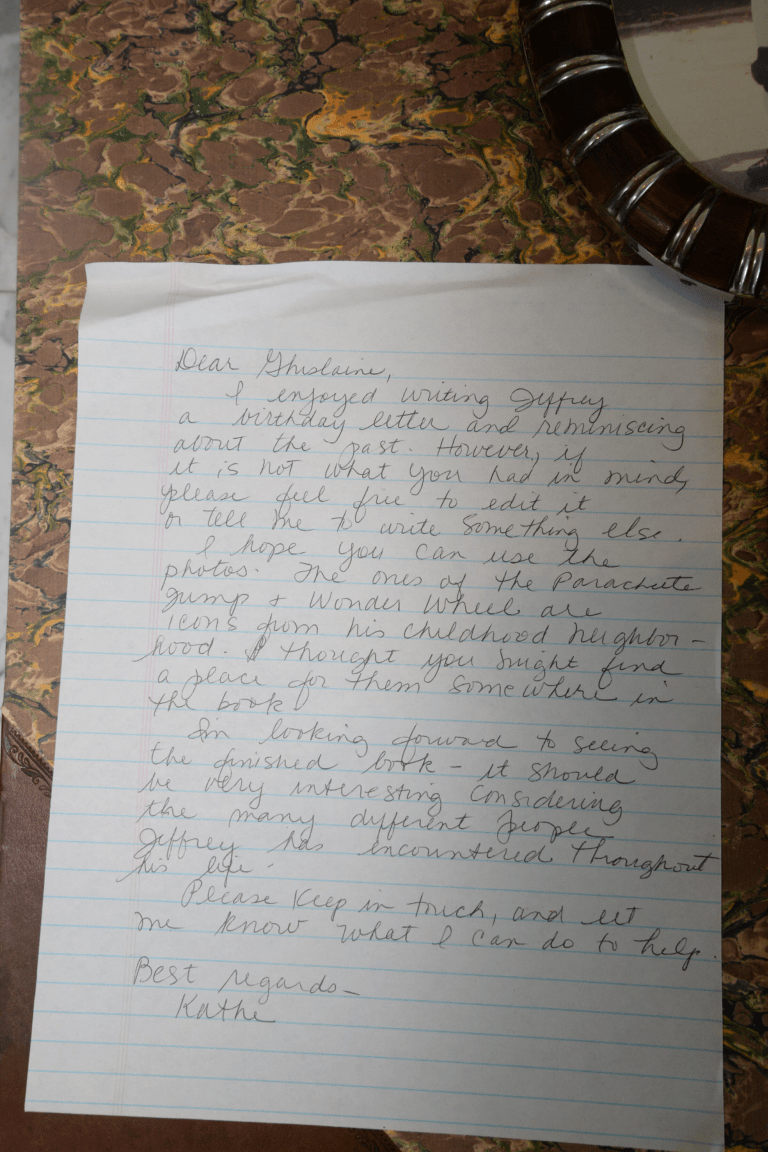 Dear Ghislaine,
I enjoyed writing Jeffrey
a birthday letter and reminiscing
about the past. However, if
it is not what you had in mind,
please feel free to edit it
or tell me to write something else.
I hope you can use the
photos. The ones of the Parachute
Jump + Wonder Wheel are
icons from his childhood neighbor-
hood. I thought you might find
a place for them somewhere in
the book.
I'm looking forward to seeing
the finished book - it should
be very interesting considering
the many different people
Jeffrey has encountered throughout
his life.
Please keep in touch, and let
me know what I can do to help.
Best regards-
Kathe